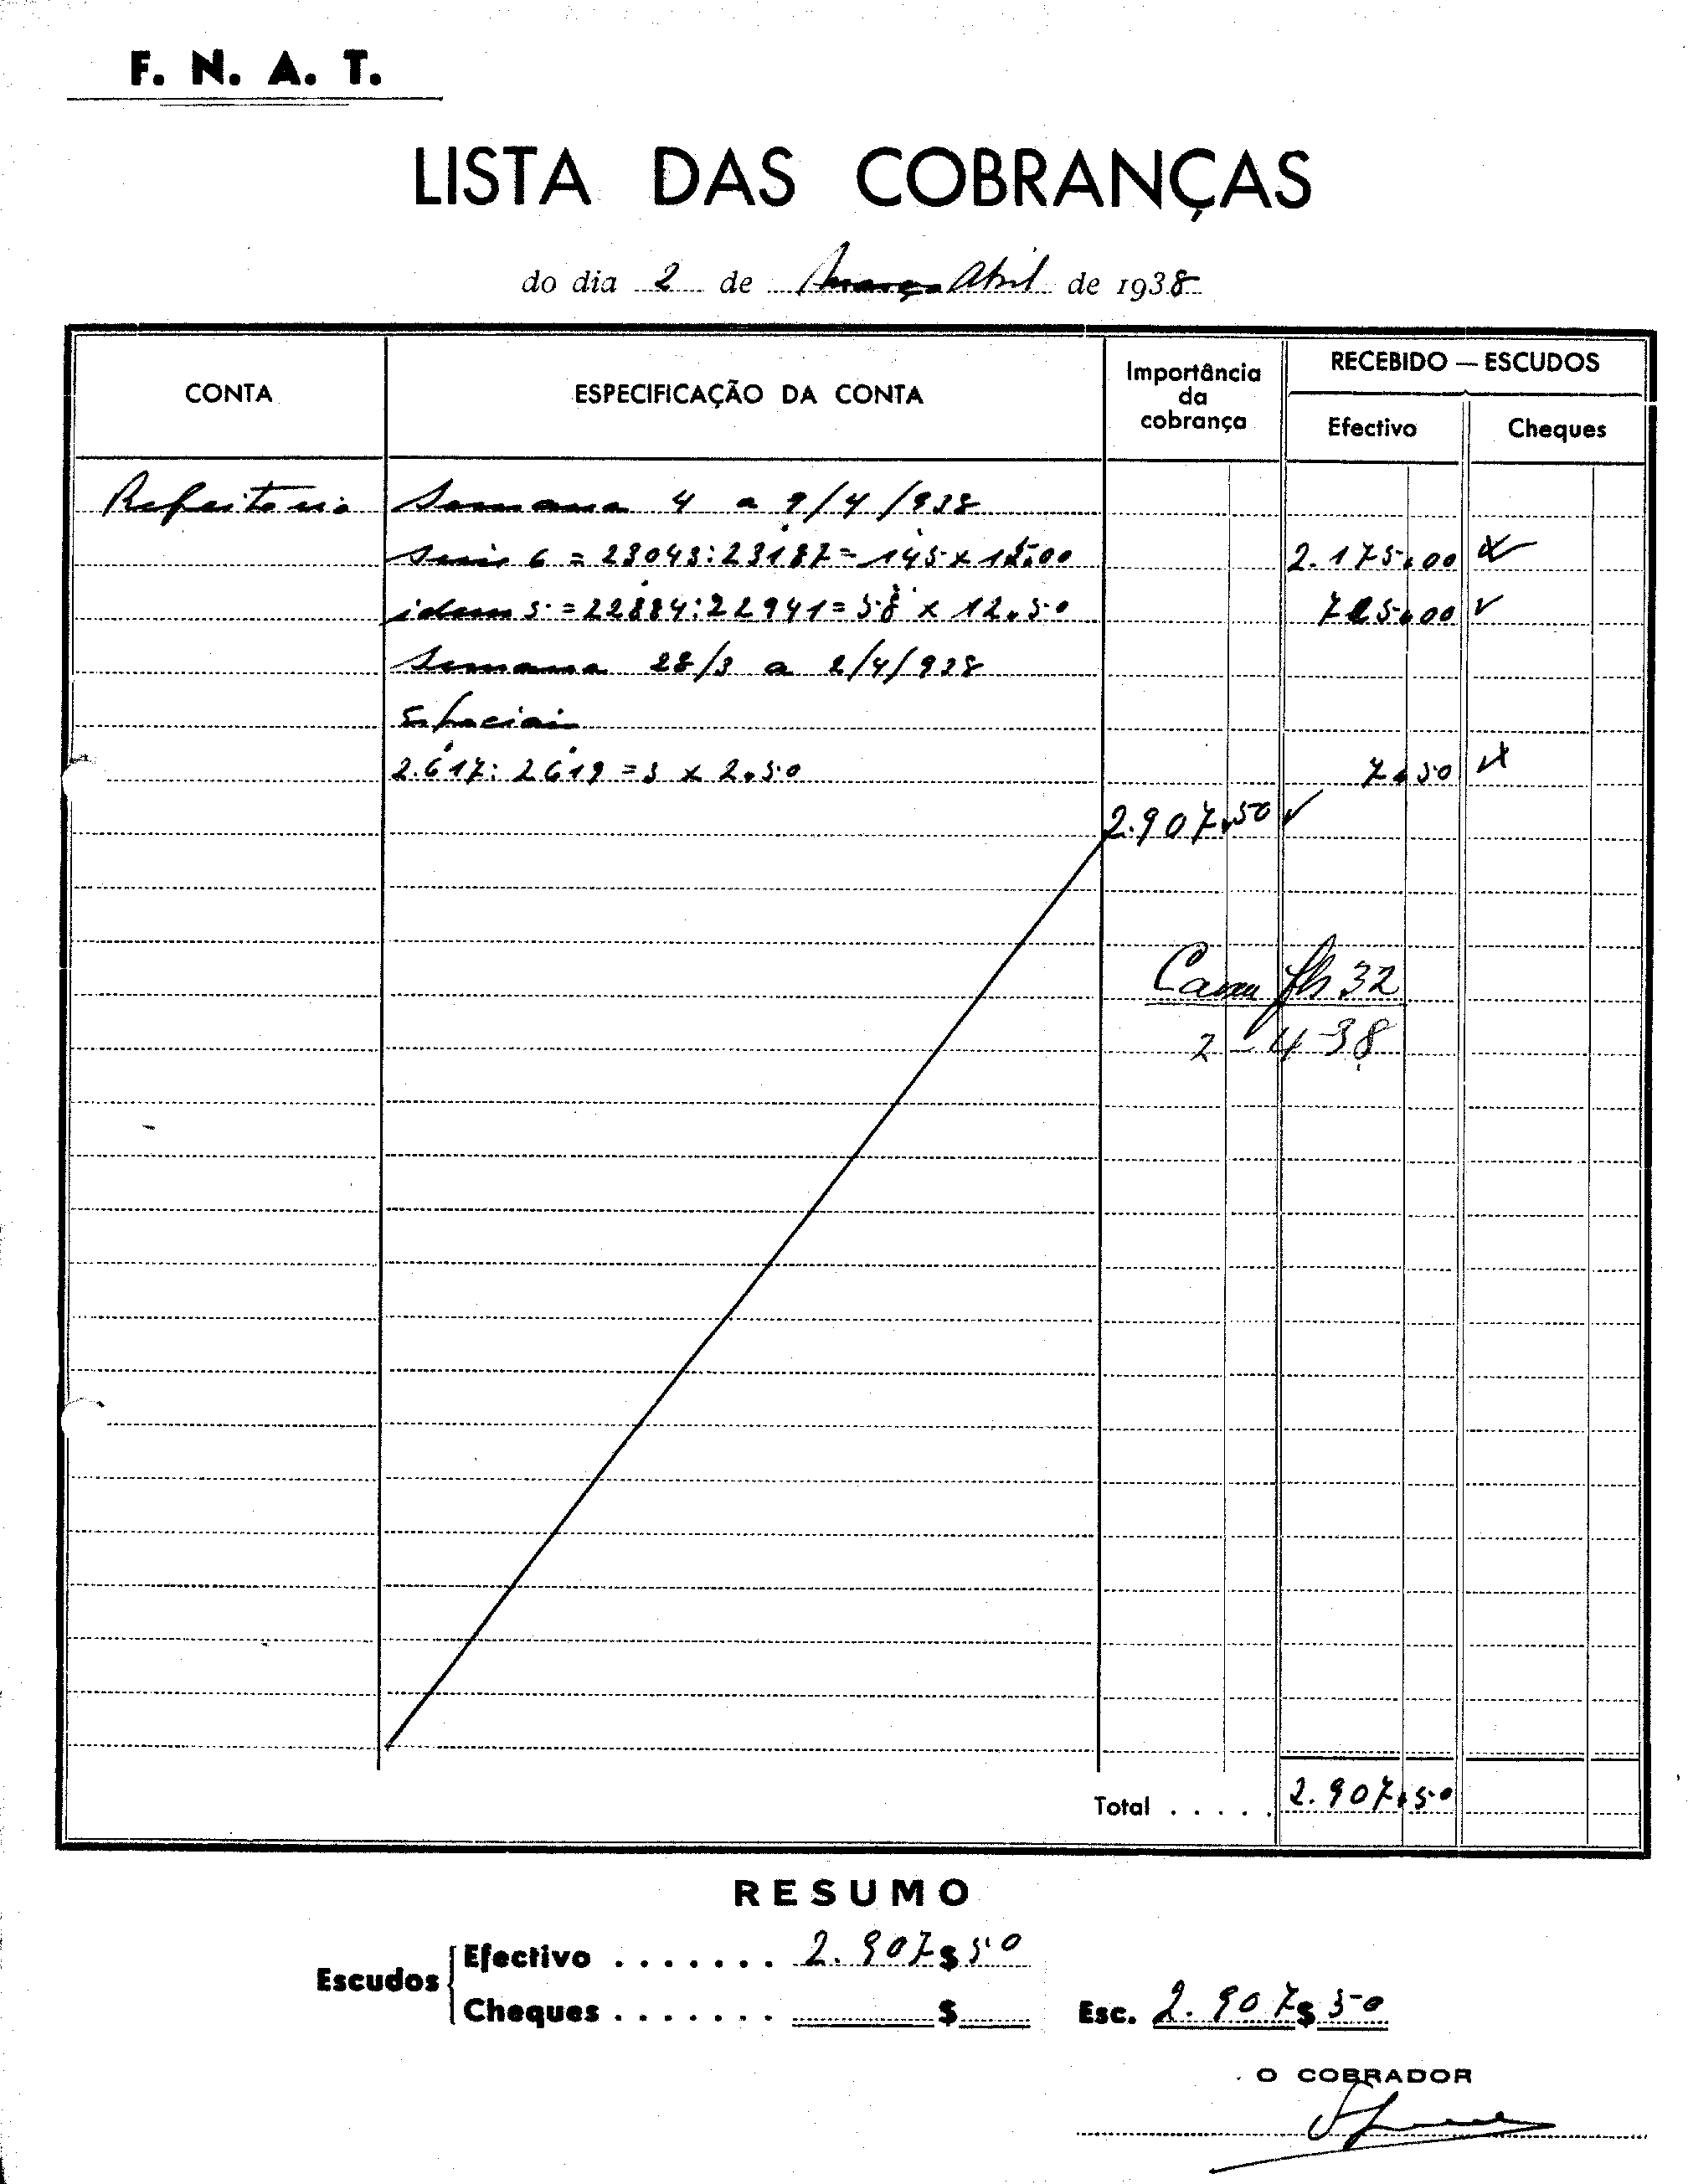 F. N. A. T.
LISTA DAS COBRANÇAS
do dia 2 de Março Abril de 1938
CONTA
ESPECIFICAÇÃO DA CONTA
Importância
da
cobrança
RECEBIDO — ESCUDOS
Efectivo
Cheques
Refeitorio Semana 4 a 9/4/938
Serie 6 = 23043:23187 = 145 x 15.00 2.175.00
idem 5 = 22884:22941 = 58 x 12.50 725.00
Semana 28/3 a 2/4/938
Especiais
2.617: 2619 = 3 x 2.50 7.50
2.907.50
fls 32
2-4-38
Total . . . . . 2.907.50
RESUMO
Escudos
Efectivo . . . . . . . 2.907$50
Cheques . . . . . . . $
Esc. 2.907$50
O COBRADOR